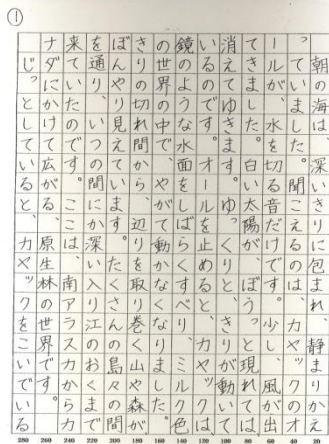 ①
朝の海は、深いきりに包まれ、静まりかえ
っていました。聞こえるのは、カヤックのオ
ールが、水を切る音だけです。少し、風が出
てきました。白い太陽が、ぼうっと現れては
消えてゆきます。ゆっくりと、きりが動いて
いるのです。オールを止めると、カヤックは
鏡のような水面をしばらくすべり、ミルク色
の世界の中で、やがて動かなくなりました。
きりの切れ間から、辺りを取り巻く山や森が
ぼんやり見えています。たくさんの島々の間
を通り、いつの間にか深い入り江のおくまで
来ていたのです。ここは、南アラスカからカ
ナダにかけて広がる、原生林の世界です。
じっとしていると、カヤックをこいでいる
280 260 240 220 200 180 160 140 120 100 80 60 40 20